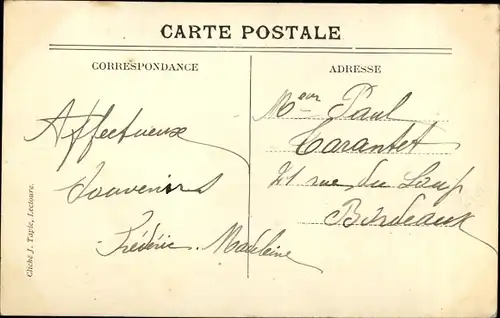 CARTE POSTALE
CORRESPONDANCE
ADRESSE
Affectueux
Souvenirs
Frédéric. Madeleine
Meur Paul
Tarantet
21 rue du Loup
Bordeaux
Cliché J. Tapie, Lectoure.